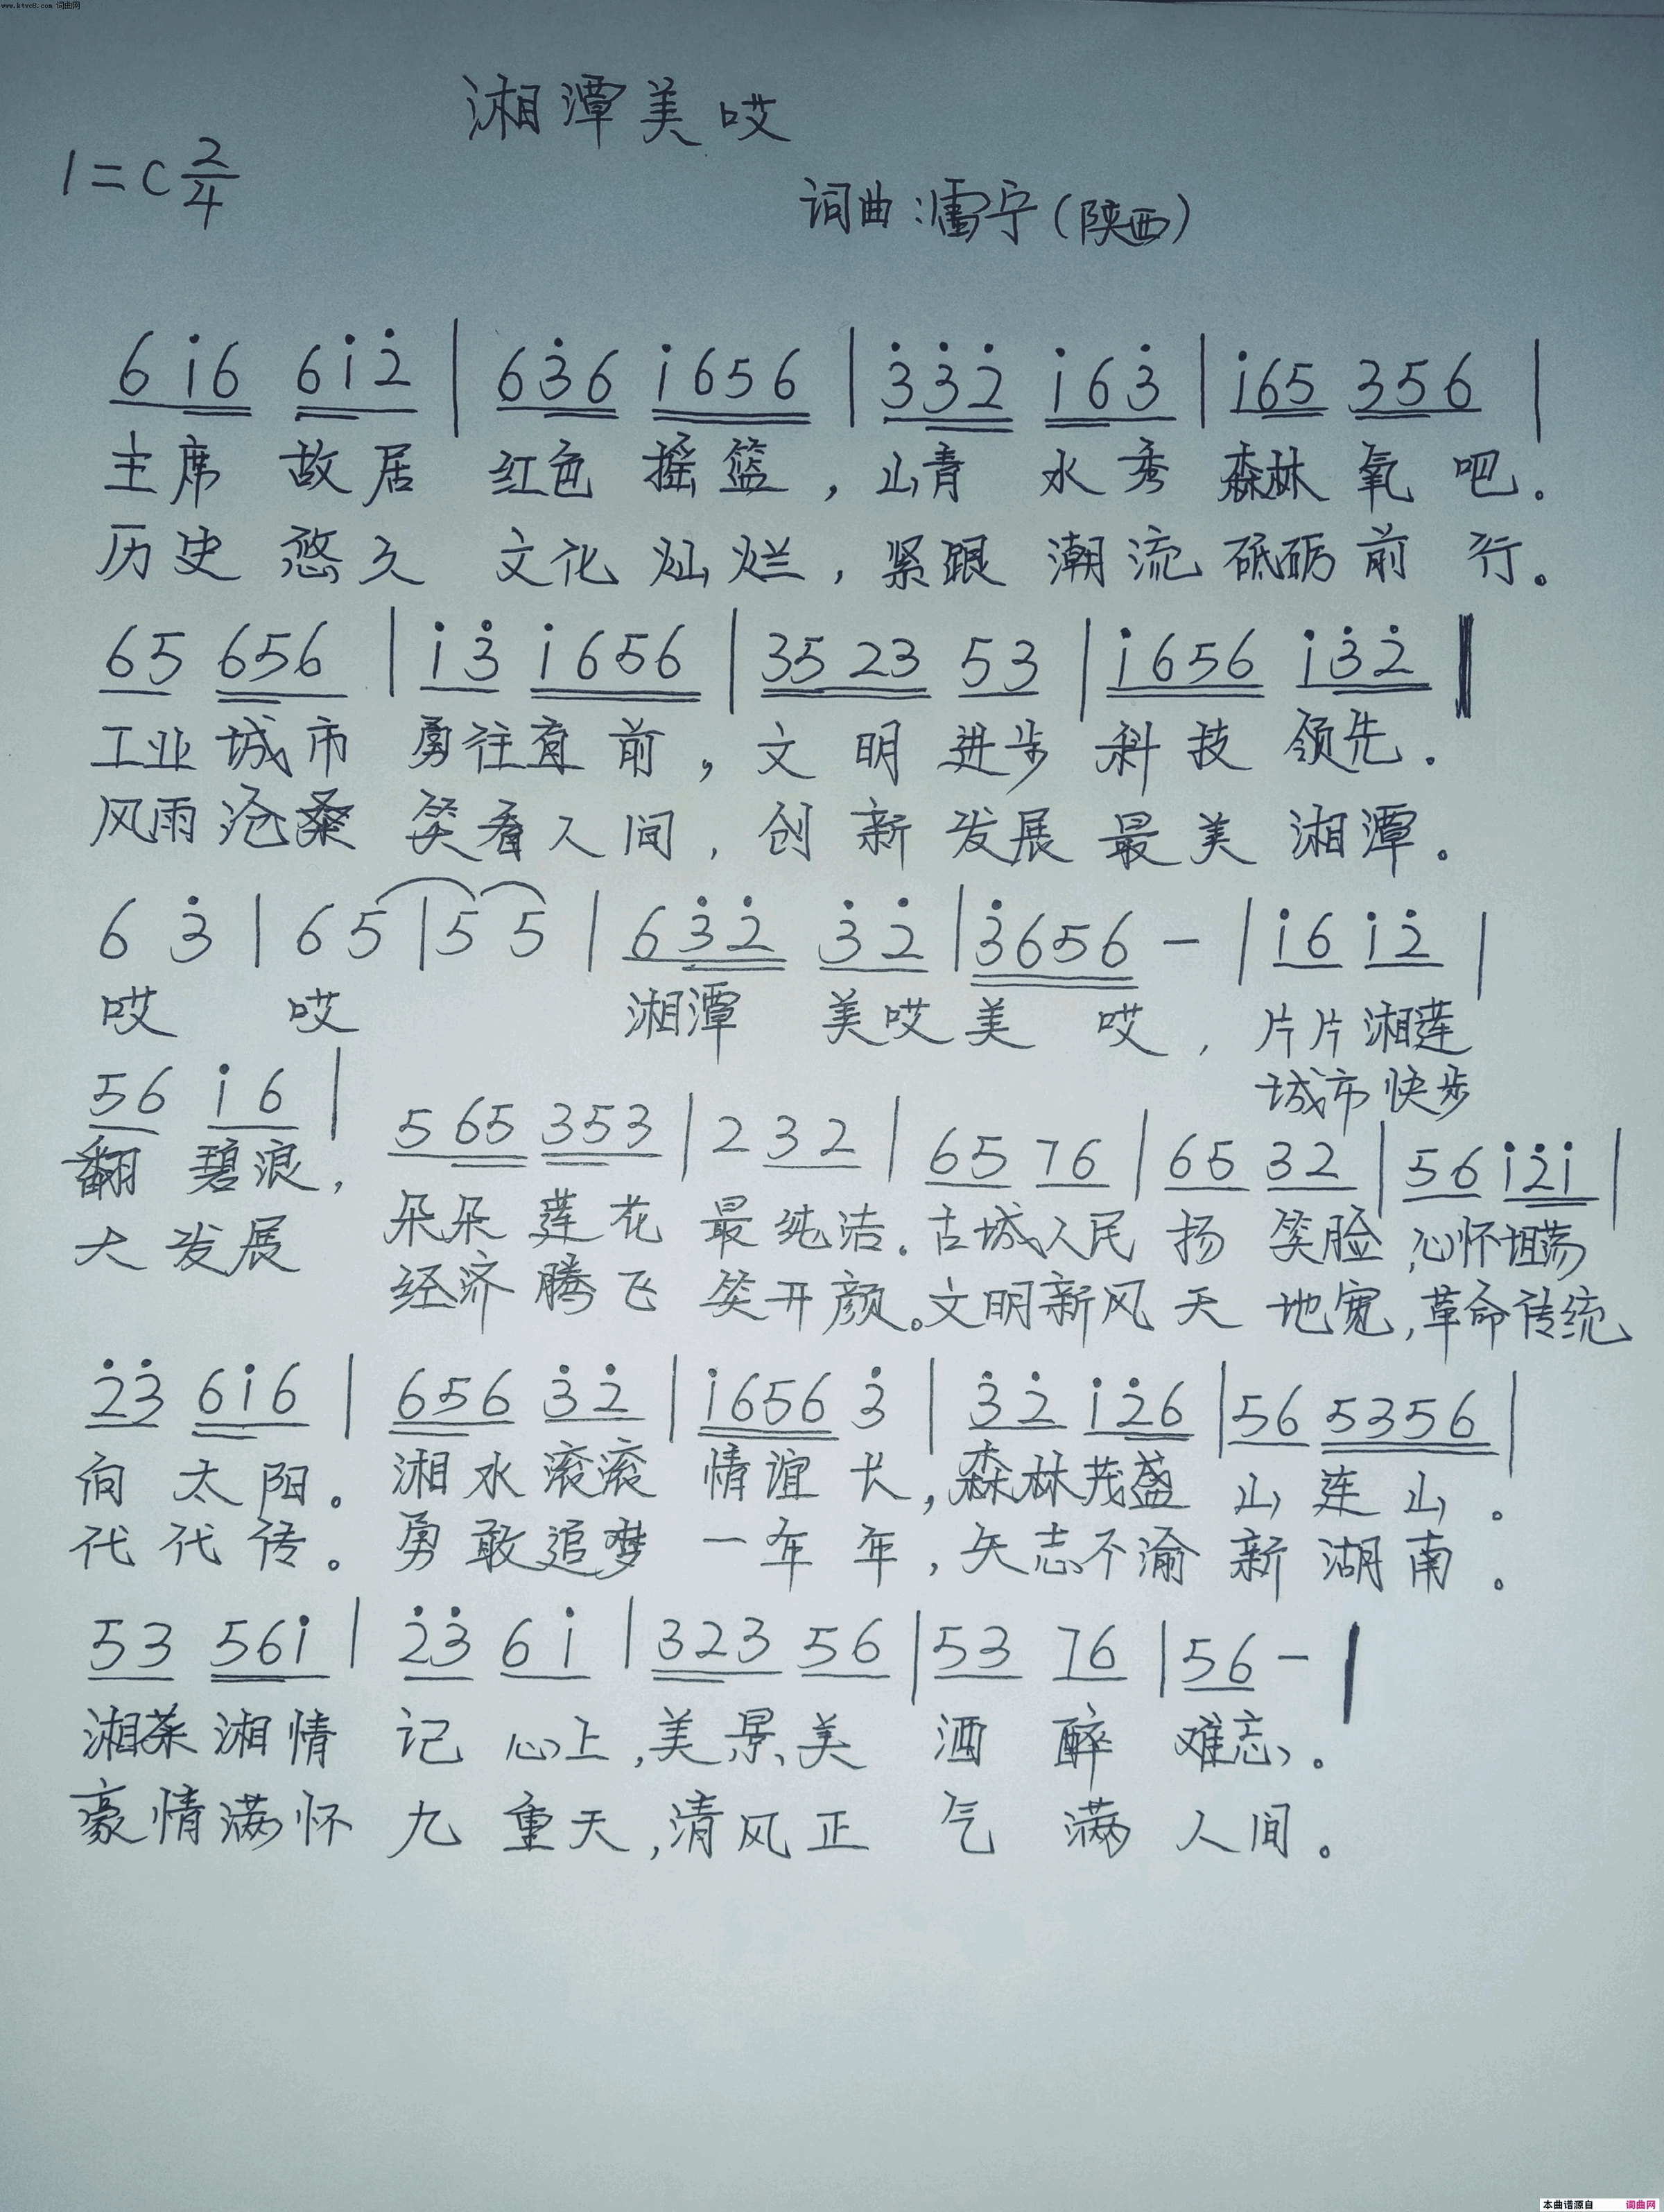 www.ktvc8.com 词曲网
湘潭美哎
1=C 2/4
词曲:雷宁(陕西)
6 i̇ 6 6 i̇ 2̇ | 6 3̇ 6 i̇ 6 5 6 | 3̇ 3̇ 2̇ i̇ 6 3̇ | i̇ 6 5 3 5 6 |
主席 故居 红色 摇篮，山青 水秀 森林 氧 吧.
历史 悠久 文化 灿烂，紧跟 潮流 砥砺 前 行。
6 5 6 5 6 | i̇ 3̇ i̇ 6 5 6 | 3 5 2 3 5 3 | i̇ 6 5 6 i̇ 3̇ 2̇ ‖
工业城市 勇往直前，文 明 进步 科技 领先.
风雨沧桑 笑看人间，创 新 发展 最美 湘潭。
6 3̇ | 6 5 | 5 5 | 6 3̇ 2̇ 3̇ 2̇ | 3̇ 6 5 6 - | i̇ 6 i̇ 2̇ |
哎 哎 湘潭 美哎美 哎，片片湘莲
城市快步
5 6 i̇ 6 | 5 6 5 3 5 3 | 2 3 2 | 6 5 7 6 | 6 5 3 2 | 5 6 i̇ 2̇ i̇ |
翻 碧浪，朵朵 莲花 最纯洁.古城人民 扬 笑脸，心怀坦荡
大 发展 经济 腾飞 笑开颜。文明新风 天 地宽，革命传统
2̇ 3̇ 6 i̇ 6 | 6 5 6 3̇ 2̇ | i̇ 6 5 6 3̇ | 3̇ 2̇ i̇ 2̇ 6 | 5 6 5 3 5 6 |
向 太阳。湘水滚滚 情谊长，森林茂盛 山连山。
代代传。勇敢追梦 一年年，矢志不渝 新湖南。
5 3 5 6 i̇ | 2̇ 3̇ 6 i̇ | 3 2 3 5 6 | 5 3 7 6 | 5 6 - |
湘茶湘情 记 心上，美景美 酒 醉 难忘。
豪情满怀 九 重天，清风正 气 满 人间。
本曲谱源自 词曲网